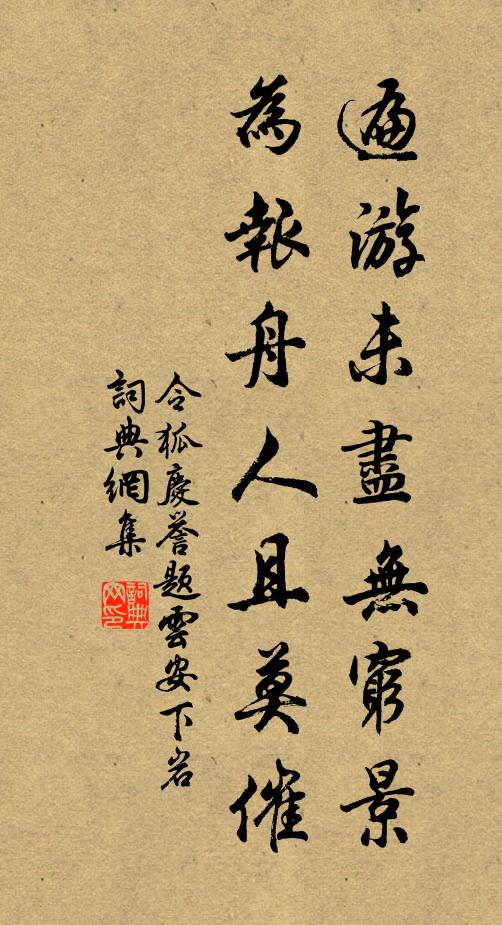 遍游未盡無窮景
為報舟人且莫催
令狐慶譽題雲安下岩
詞典網集
詞典網印